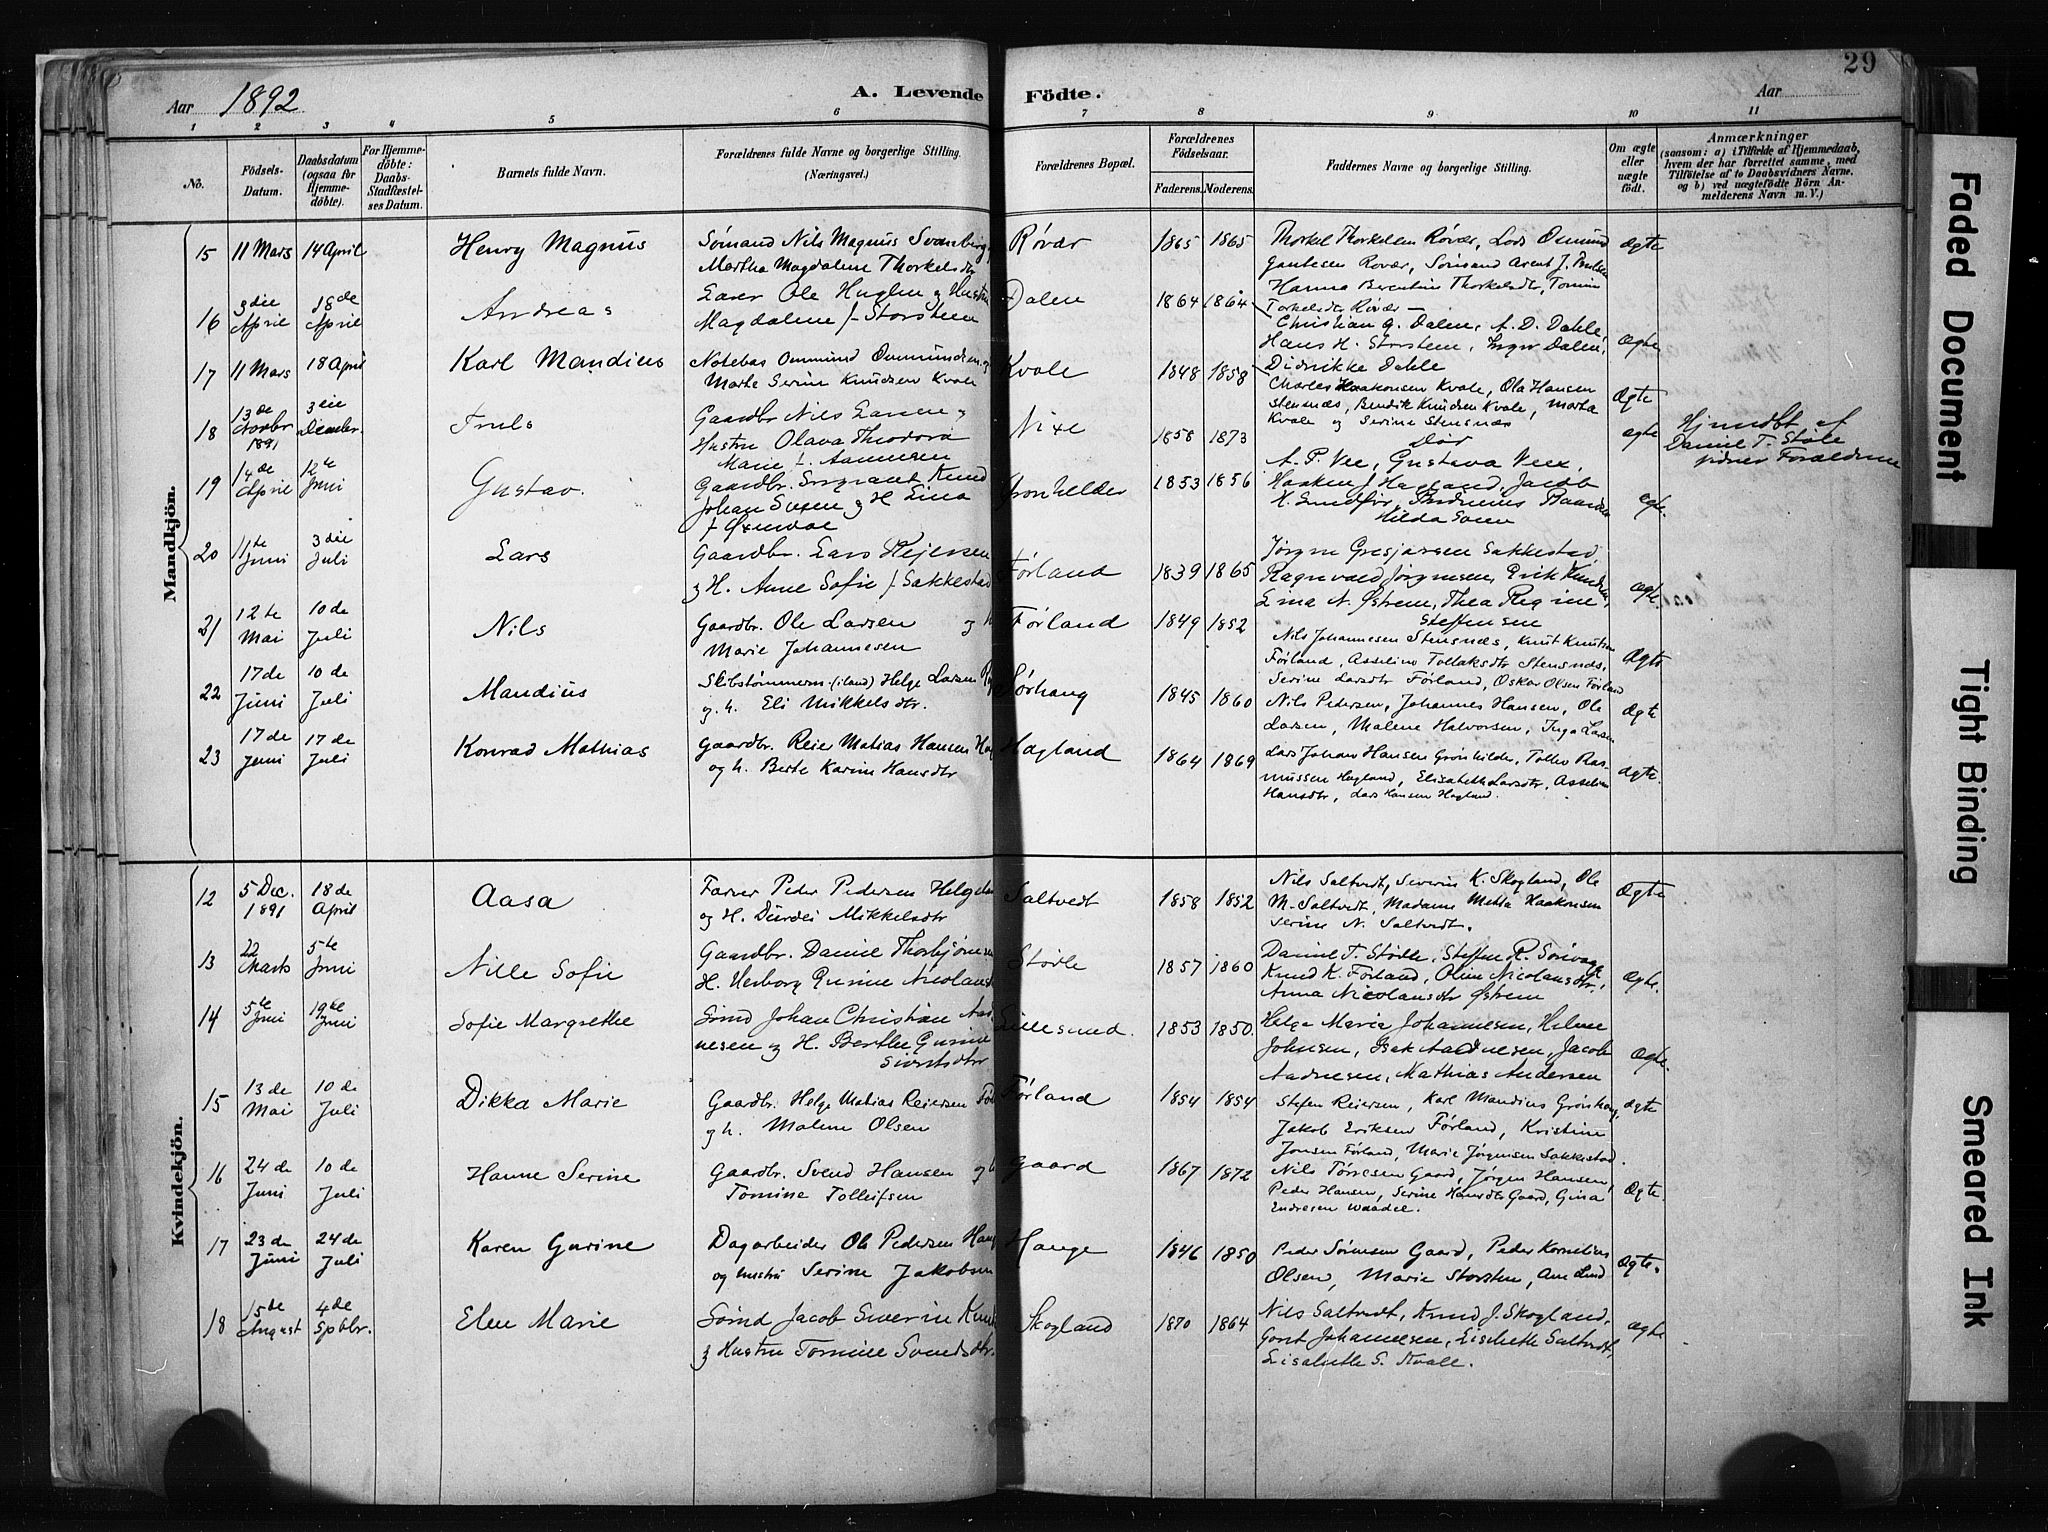 29
Aar 1892
A. Levende Födte.
Aar
1 2 3 4 5 6 7 8 9 10 11
No.
Födsels-Datum.
Daabsdatum (ogsaa for Hjemme-döbte).
For Hjemme-döbte: Daabs-Stadfæstel-ses Datum.
Barnets fulde Navn.
Forældrenes fulde Navne og borgerlige Stilling.
(Næringsvei.)
Forældrenes Bopæl.
Forældrenes Födselsaar.
Faderens. Moderens.
Faddernes Navne og borgerlige Stilling.
Om ægte eller uægte födt.
Anmærkninger
(saasom: a) i Tilfælde af Hjemmedaab, hvem der har forrettet samme, med Tilföielse af to Daabsvidners Navne, og b) ved uægtefödte Börn An-melderens Navn m. V.)
Mandkjön.
15 11 Mars 14 April Henry Magnus
Sömand Nils Magnus Svanberg
Martha Magdalene Thorkelsdtr
Røvær 1865 1865
Thorkel Thorkelsen Røvær, Lods Osmund
Gautesen Rovær, Sömand Arent J.
Hanna Berentine Thorkelsdtr,
Torkelsdtr Røvær
Ægte
16 3die April 18de April Andreas
Ole Huglen og Hustru
Magdalene f. Storsteen
Dalen 1864 1864
Christian G. Dalen, A. D. Dahle
Hans H. Storsteen, Inger Dalen,
Didrikke Dahle
Ægte
17 11 Mars 18 April Karl Mandius
Notebas Ommund Ommundsen og
Marte Serine Knudsen Kvale
Kvale 1848 1858
Charles Haakonsen Kvale, Ola Hansen
Stensnæs, Bendik Knudsen Kvale, Marta
Kvale og Serine Stensnæs
Ægte
18 13de Novbr 1891 3die Decmbr. Truls
Gaardbr Nils Larsen og
Hustru Olava Theodora
Marie f. Aamnesen
Nixe 1858 1873
Død
ægte
Hjemdbt af
Daniel T. Støle
vidner Forældrene
19 14de April 12te Juni Gustav.
Gaardbr. Sergeant Knud
Johan Svesen og H Lina
f Øxnevae
Grønhelder 1853 1856
A. P. Vee, Gustava Veex,
Haaken J. Hagland, Jacob
H. Sundfør,
Hilda Soeen
ægte.
20 11te Juni 3die Juli Lars
Gaardbr. Lars Rejersen
og H. Anne Sofie f Sakkestad
Førland 1839 1865
Jørgen Gresjarsen Sakkestad
Ragnvald Jørgensen, Erik Knudsen,
Lina N. Østrem, Thea Regine
Steffensen
ægte.
21 12te Mai 10de Juli Nils
Gaardbr. Ole Larsen og h
Marie Johannesen
Førland 1849 1852
Nils Johannesen Stensnæs, Knut Knutsen
Førland, Asseline Tollaksdtr Stensnæs,
Serine Larsdtr Førland, Oskar Olsen Førland
Ægte
22 17de Juni 10de Juli Mandius
Skibstømmerm. (iland) Helge Larsen
og h. Eli Mikkelsdtr.
Sørhaug 1845 1860
Nils Pedersen, Johannes Hansen, Ole
Larsen, Malene Halvorsen, Inga Larsen
Ægte
23 17de Juni 17de Juli Konrad Mathias
Gaardbr. Reier Matias Hansen Hag
og h. Berte Karine Hansdtr
Hagland 1864 1869
Lars Johan Hansen Grønhilder, Tollev Ras-
mussen Hagland, Elisabeth Larsdtr, Asseline
Hansdtr, Lars Hansen Hagland.
Ægte.
Kvindekjön.
12 5 Dec. 1891 18de April Aasa
Farver Peder Pedersen
og H. Durdei Mikkelsdtr
Saltvedt 1858 1852
Nils Saltvedt, Severin K. Skogland, Ole
M. Saltvedt, Madame Metha Haakonsen
Serine N. Saltvedt.
Ægte
13 22 Marts 5te Juni Nille Sofie
Gaardbr. Daniel Thorbjørnsen
H. Herborg Gurine Nicolaus
Stødle 1857 1860
Daniel T. Stødle, Steffen R. Sørvaag
Knud K. Førland, Oline Nicolausdtr,
Anna Nicolausdtr Østrem
Ægte.
14 5te Juni 19de Juni Sofie Margrethe
Sömd Johan Christian Aad
nesen og H. Berthe Gurine
Sivertsdtr
Lillesund. 1853 1850.
Helga Marie Johannesen, Helene
Johnsen, Isak Aadnesen, Jacob
Aadnesen, Mathias Andersen
Ægte.
15 13de Mai 10de Juli Dikka Marie
Gaardbr. Helge Matias Reiersen Før
og h. Malene Olsen
Førland 1854 1854
Stefen Reiersen, Karl Mandius Grønhaug,
Jakob Eriksen Førland, Kristine
Jonsen Førland, Marie Jørgensen Sakkestad.
Ægte
16 24de Juni 10de Juli Hanne Serine
Gaardbr. Svend Hansen og h
Tomine Tolleifsen
Gaard 1867 1872
Nils Tørresen Gaard, Jørgen Hansen,
Peder Hansen, Serine Hansdtr Gaard, Gina
Endresen Waadel.
Ægte.
17 23de Juni 24de Juli Karen Gurine
Dagarbeider Ole Pedersen Haug
og hustru Serine Jakobsen
Hauge 1846 1850
Peder Sørensen Gaard, Peder Kornelius
Olsen, Marie Storsten, Ane Lind
Ægte.
18 15de August 4de Sptbbr. Elen Marie
Sømd Jacob Severin Knud
og Hustru Tomine Svendsdtr.
Skogland 1870 1864
Nils Saltvedt, Knud J. Skogland,
Gort Johannesen, Lisbethe Saltvedt,
Lisabethe S. Kvale.
ægte
Faded Document
Tight Binding
Smeared Ink